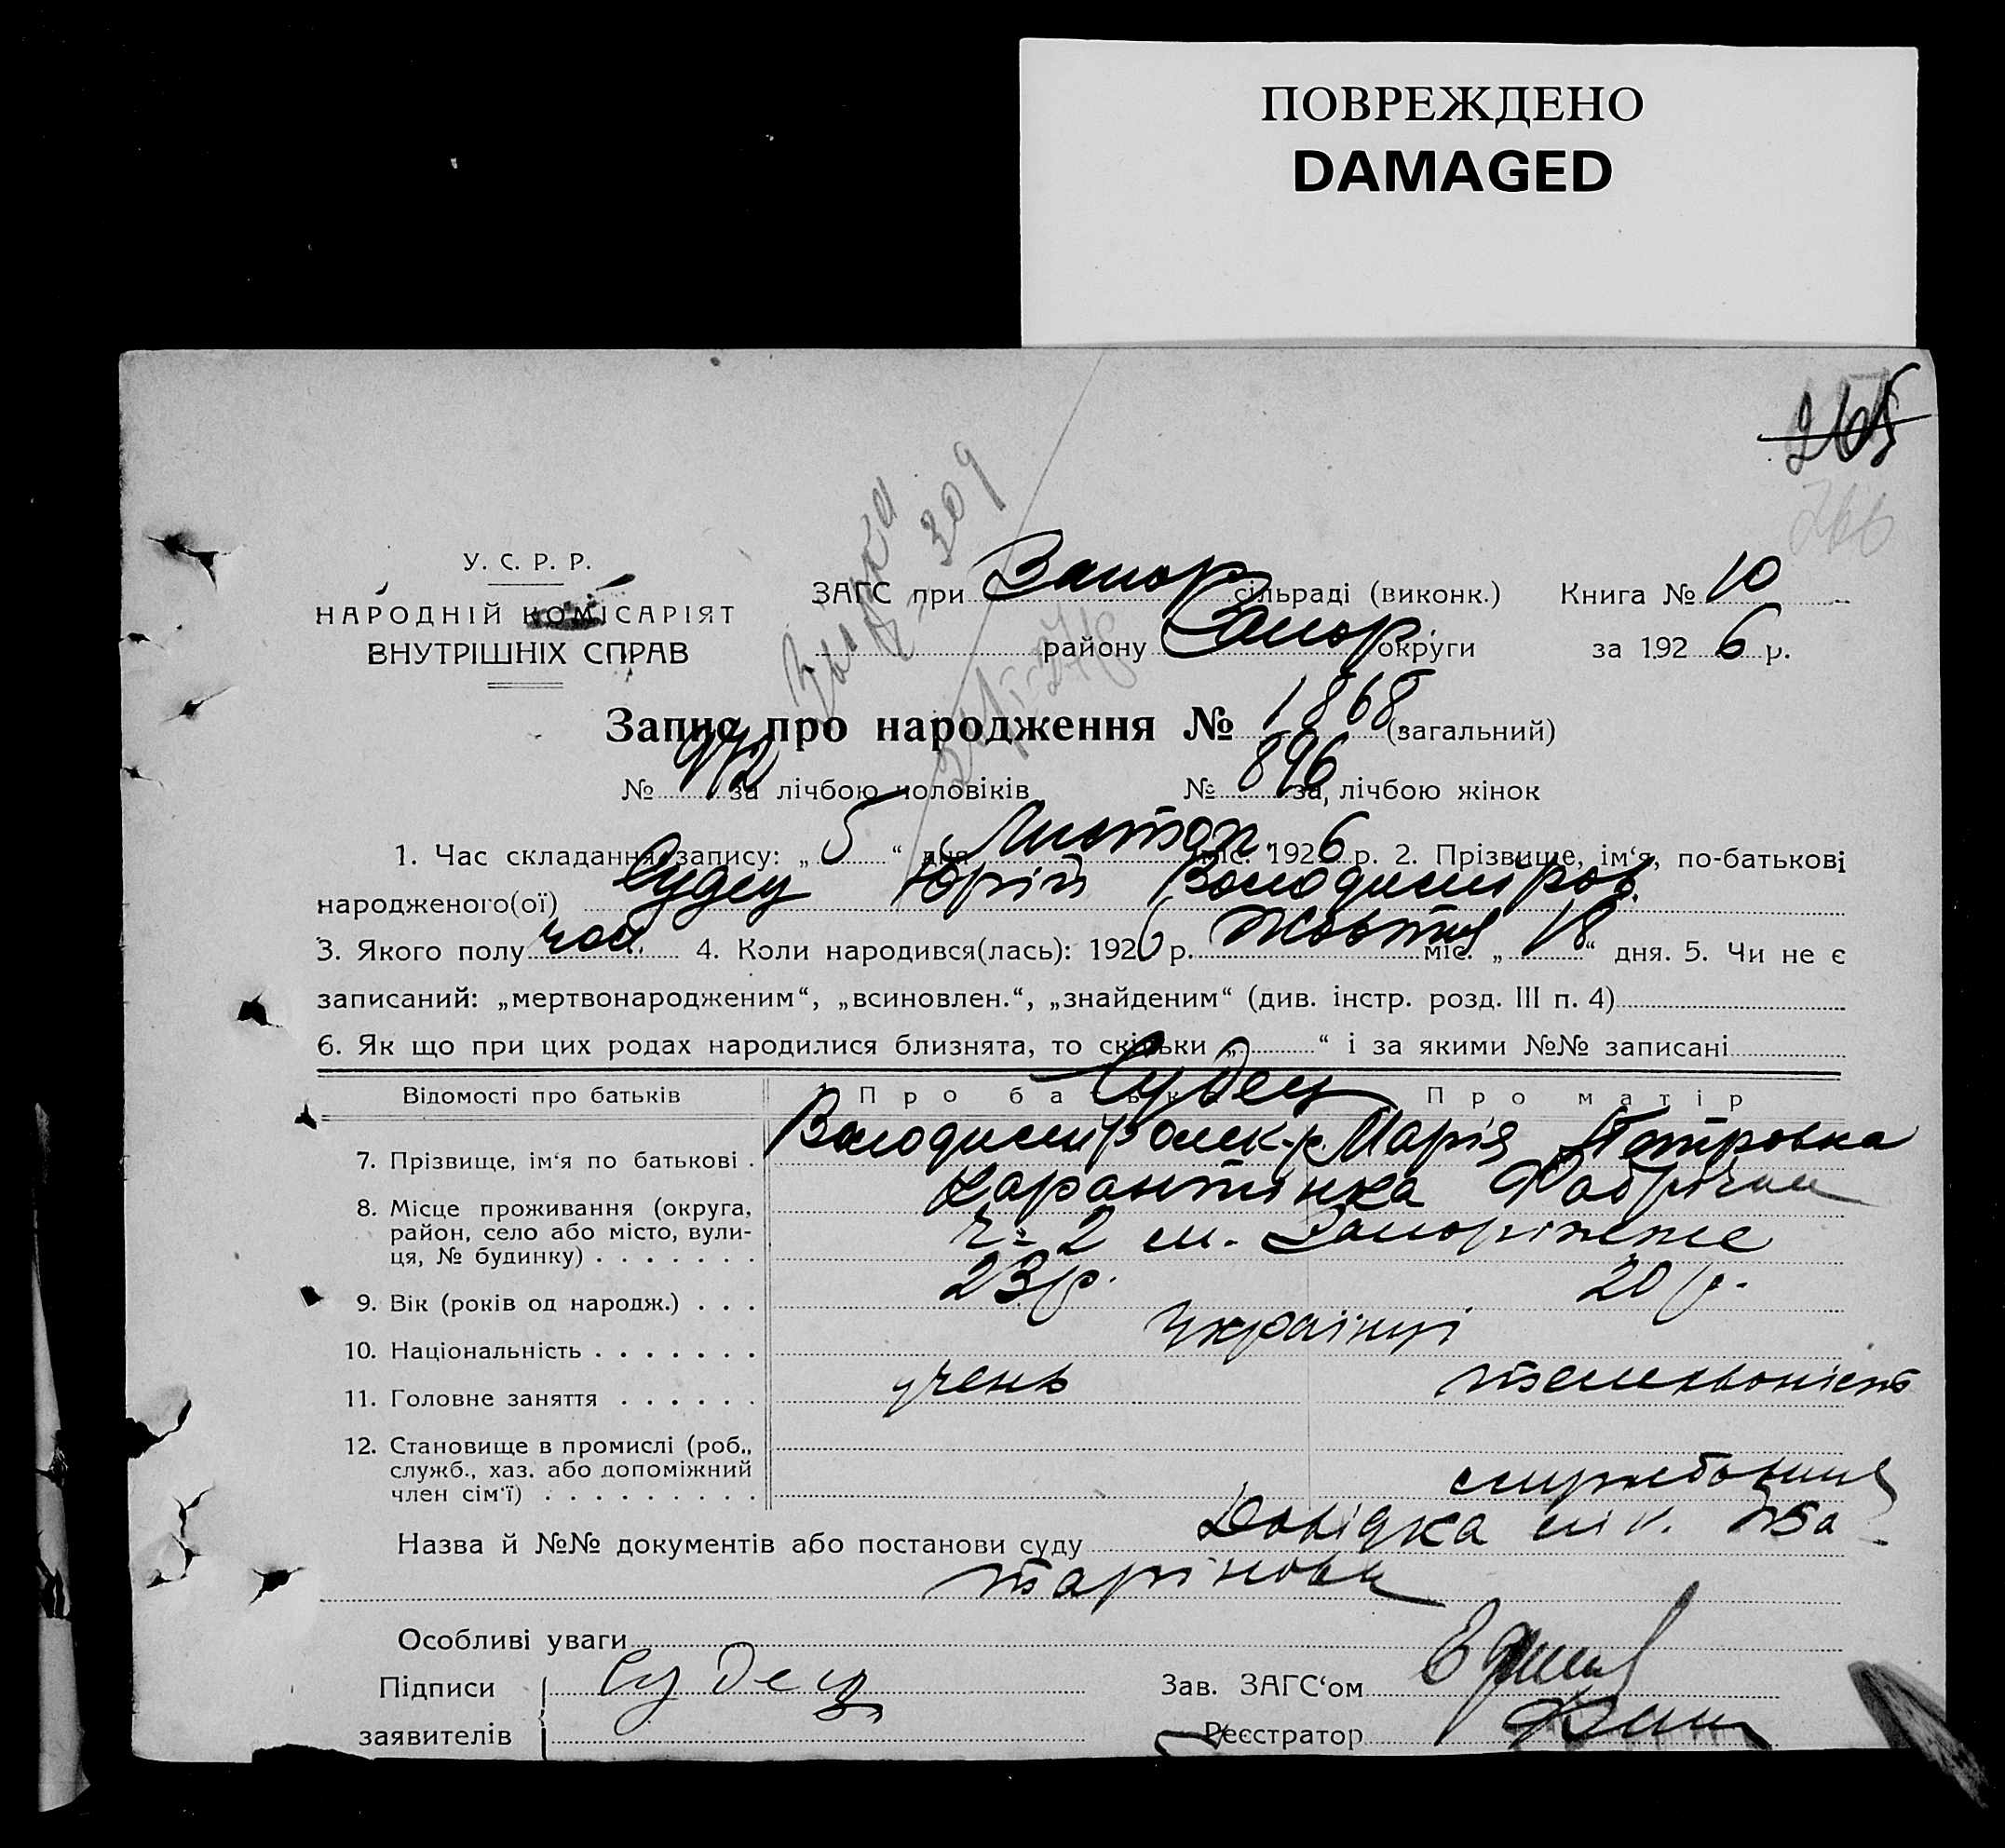 ПОВРЕЖДЕНО
DAMAGED
265
266
309
У. С. Р. Р.
НАРОДНІЙ КОМІСАРІЯТ
ВНУТРІШНІХ СПРАВ
ЗАГС при Запор сільраді (виконк.) Книга № 10
району Запор округи за 1926 р.
Запис про народження № 1868 (загальний)
№ 972 за лічбою чоловіків № 896 за, лічбою жінок
1. Час складання запису: „ 5 “ дня Листоп. міс. 1926 р. 2. Прізвище, ім‘я, по-батькові
народженого(ої) Судец Юрій Володимиров.
3. Якого полу чол. 4. Коли народився(лась): 1926 р. Жовтня міс. „ 18 “ дня. 5. Чи не є
записаний: „мертвонародженим“, „всиновлен.“, „знайденим“ (див. інстр. розд. III п. 4)
6. Як що при цих родах народилися близнята, то скільки „ “ і за якими №№ записані
Відомості про батьків Про батька Про матір
Судец
7. Прізвище, ім‘я по батькові . Володимир Олек-р. Марія Петровна
8. Місце проживання (округа, Карантинка Фабрична
район, село або місто, вули- ч= 2 м. Запоріжже
ця, № будинку) . . . . . . .
9. Вік (років од народж.) . . . 23 р. 20 р.
10. Національність . . . . . . . Українці
11. Головне заняття . . . . . . учень телефоніст
12. Становище в промислі (роб.,
служб., хаз. або допоміжний
член сім‘ї) . . . . . . . . . службовиця
Назва й №№ документів або постанови суду Довідка лік. Ва-
тарінова
Особливі уваги
Підписи Судец Зав. ЗАГС‘ом
заявителів Реєстратор